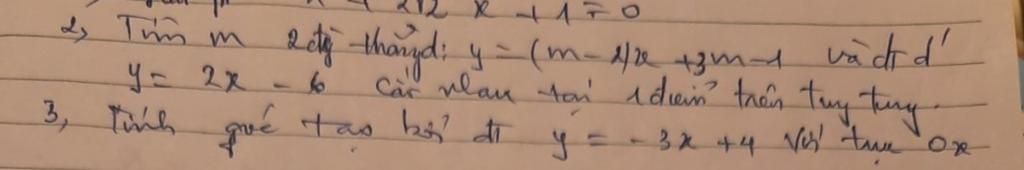 x + 1 = 0
2, Tìm m 2 đg thẳng d: y = (m - 2)x + 3m - 1 và đt d'
y = 2x - 6 cắt nhau tại 1 điểm trên trục tung.
3, Tính góc tạo bởi đt y = -3x + 4 với trục 0x